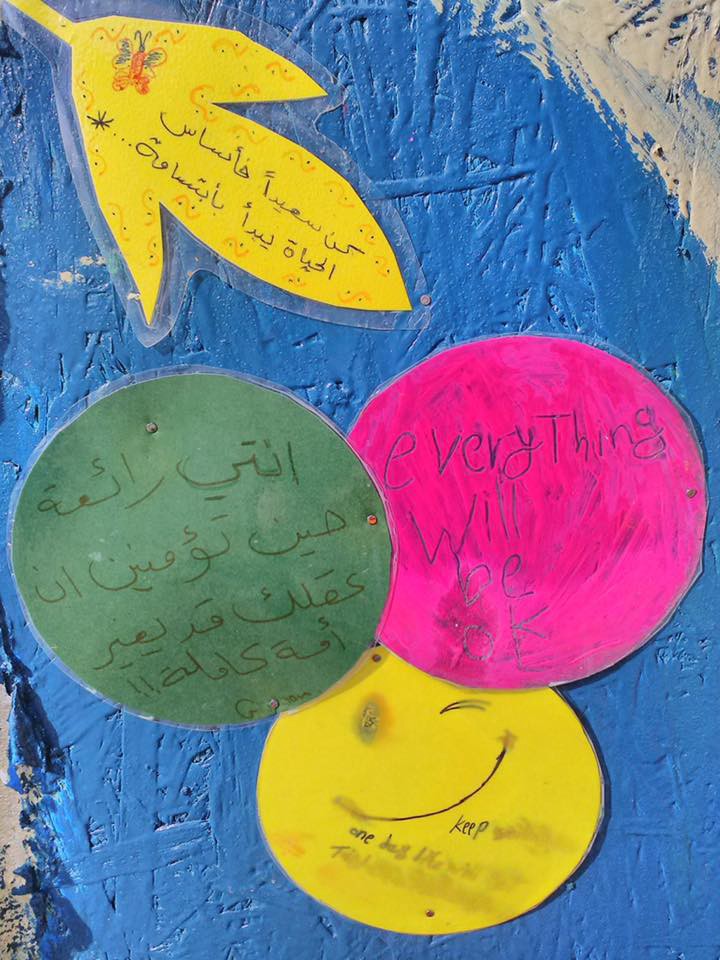 كن سعيداً فأساس
الحياة يبدأ بأبتسامة...*
انتي رائعة
حين تؤمنين ان
عقلك قد يغير
أمة كاملة!!
everyThing
will
be
oK
keep
one day